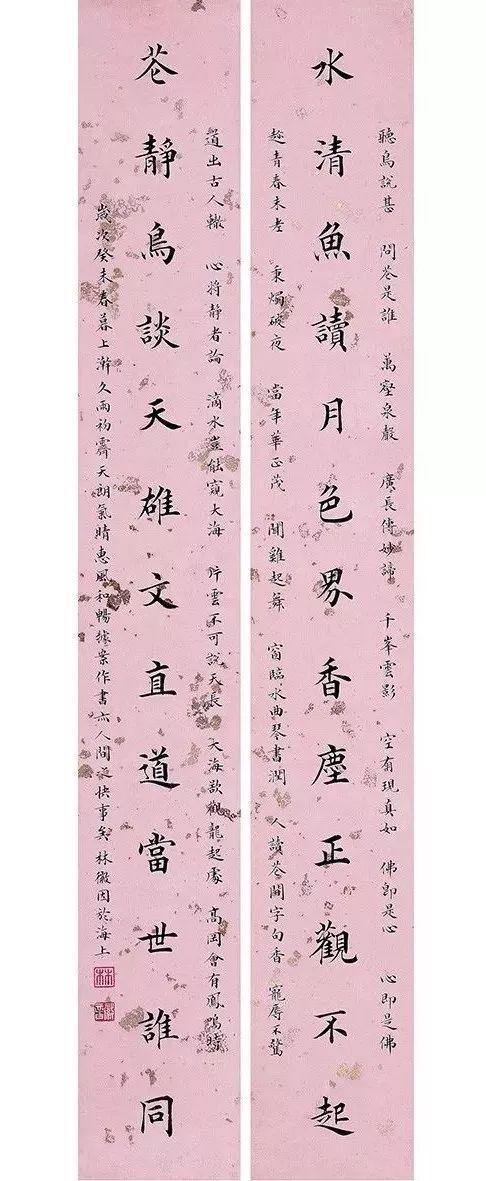 聽鳥說甚 問花是誰 萬壑泉聲 廣長傳妙諦 千峯雲影 空有現真如 佛即是心 心即是佛
水清魚讀月色界香塵正觀不起
趁青春未老 秉燭破夜 當年華正茂 聞雞起舞 窗臨水曲琴書潤 人讀花間字句香 寵辱不驚
道出古人轍 心將靜者論 滴水豈能窺大海 片雲不可說天長 大海欲觀龍起處 高岡會有鳳鳴時
花靜鳥談天雄文直道當世誰同
歲次癸未春暮上澣久雨初霽天朗氣晴惠風和暢據案作書亦人間之快事矣林徽因於海上